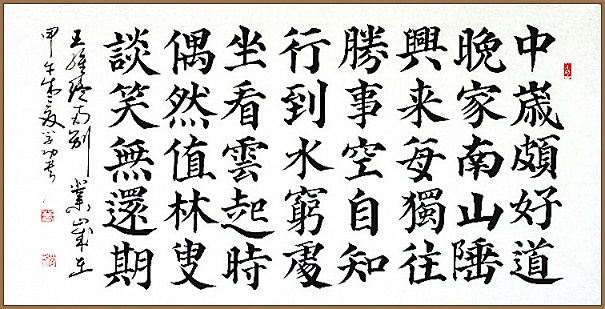 中歲頗好道
晚家南山陲
興来每獨往
勝事空自知
行到水窮處
坐看雲起時
偶然值林叟
談笑無還期
王維終南別業 歲在
甲午